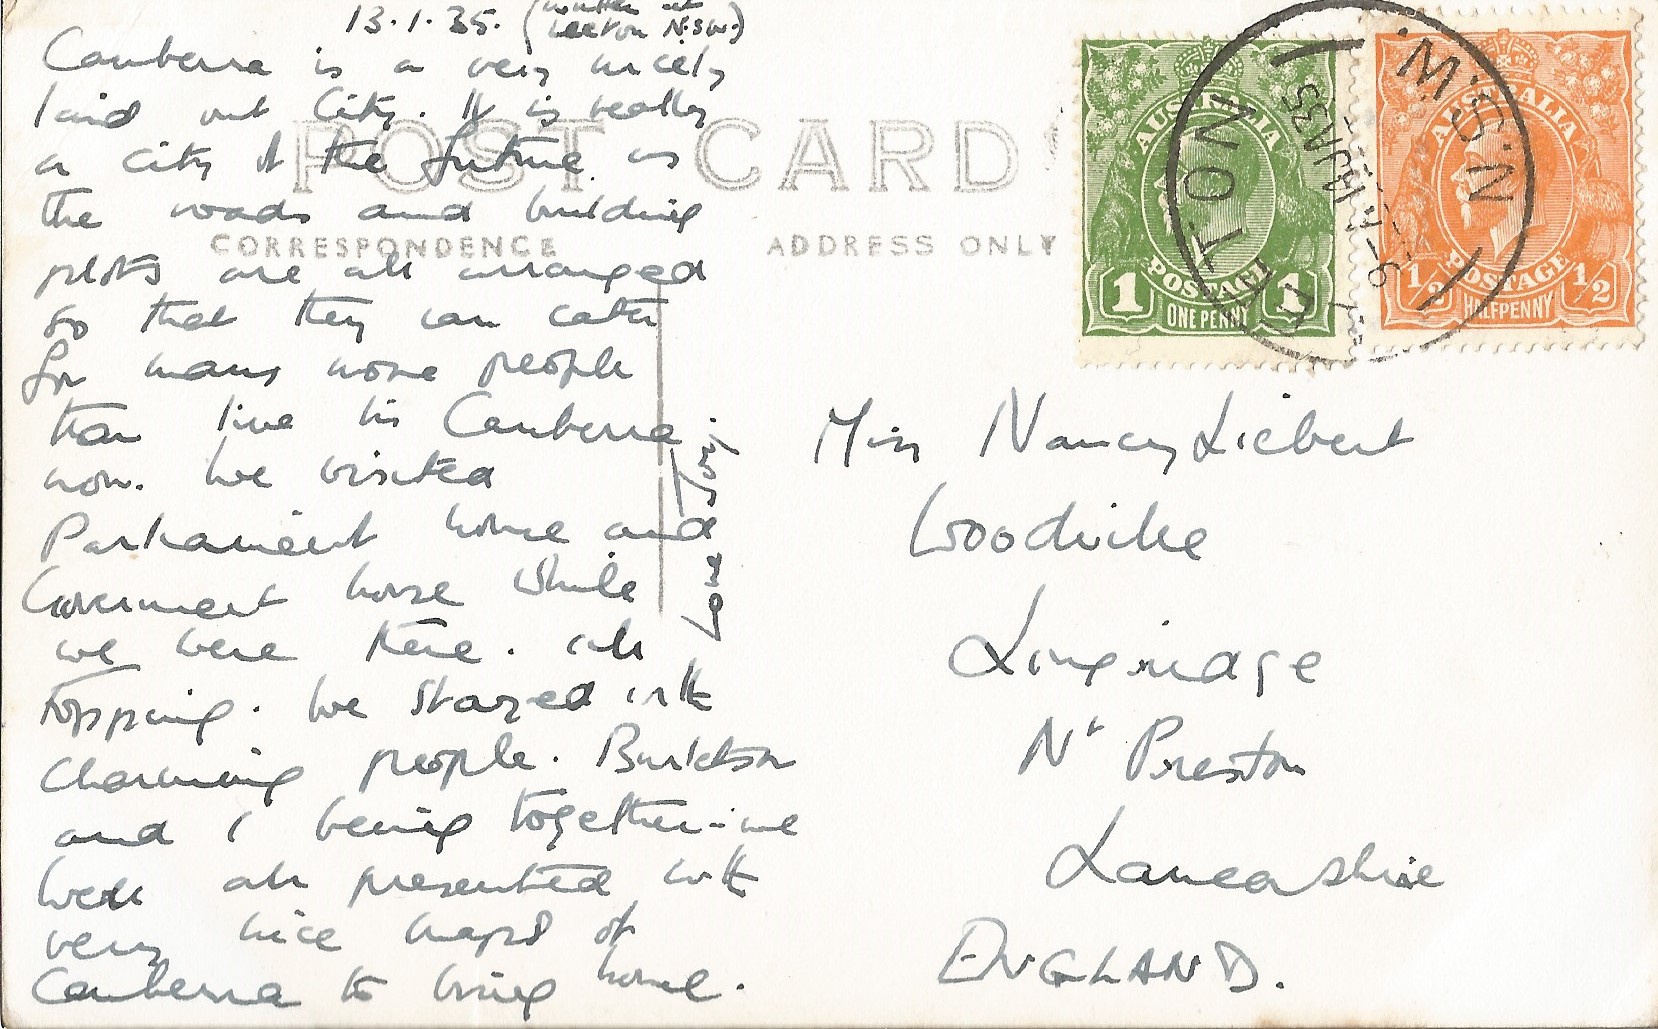 13.1.35. (written at
Leeton N.S.W.)
Canberra is a very nicely
laid out City. It is really
a city of the future as
the roads and building
plots are all arranged
so that they can cater
for many more people
than live in Canberra
now. We visited
Parliament house and
Government house while
we were there. all
topping. We stayed with
charming people.
and I being together - we
were all presented with
very nice maps of
Canberra to bring home.
Love
POST CARD
CORRESPONDENCE
ADDRESS ONLY
AUSTRALIA
1 POSTAGE 1
ONE PENNY
AUSTRALIA
1/2 POSTAGE 1/2
HALFPENNY
LEETON
N.S.W.
14 JA 35
Miss Nancy Liebert
Woodville
Longridge
Nr Preston
Lancashire
ENGLAND.